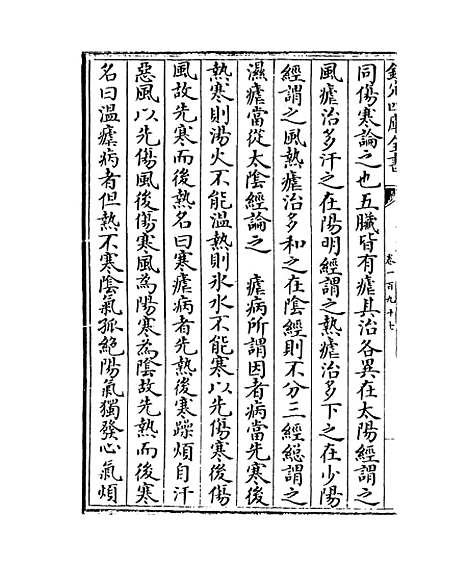 欽定四庫全書
卷一百九十七
同傷寒論之也五臟皆有瘧其治各異在太陽經謂之
風瘧治多汗之在陽明經謂之熱瘧治多下之在少陽
經謂之風熱瘧治多和之在陰經則不分三經緫謂之
濕瘧當從太陰經論之　瘧病所謂因者病當先寒後
熱寒則湯火不能温熱則氷水不能寒以先傷寒後傷
風故先寒而後熱名曰寒瘧病者先熱後寒躁煩自汗
惡風以先傷風後傷寒風為陽寒為陰故先熱而後寒
名曰温瘧病者但熱不寒陰氣孤絶陽氣獨發心氣煩